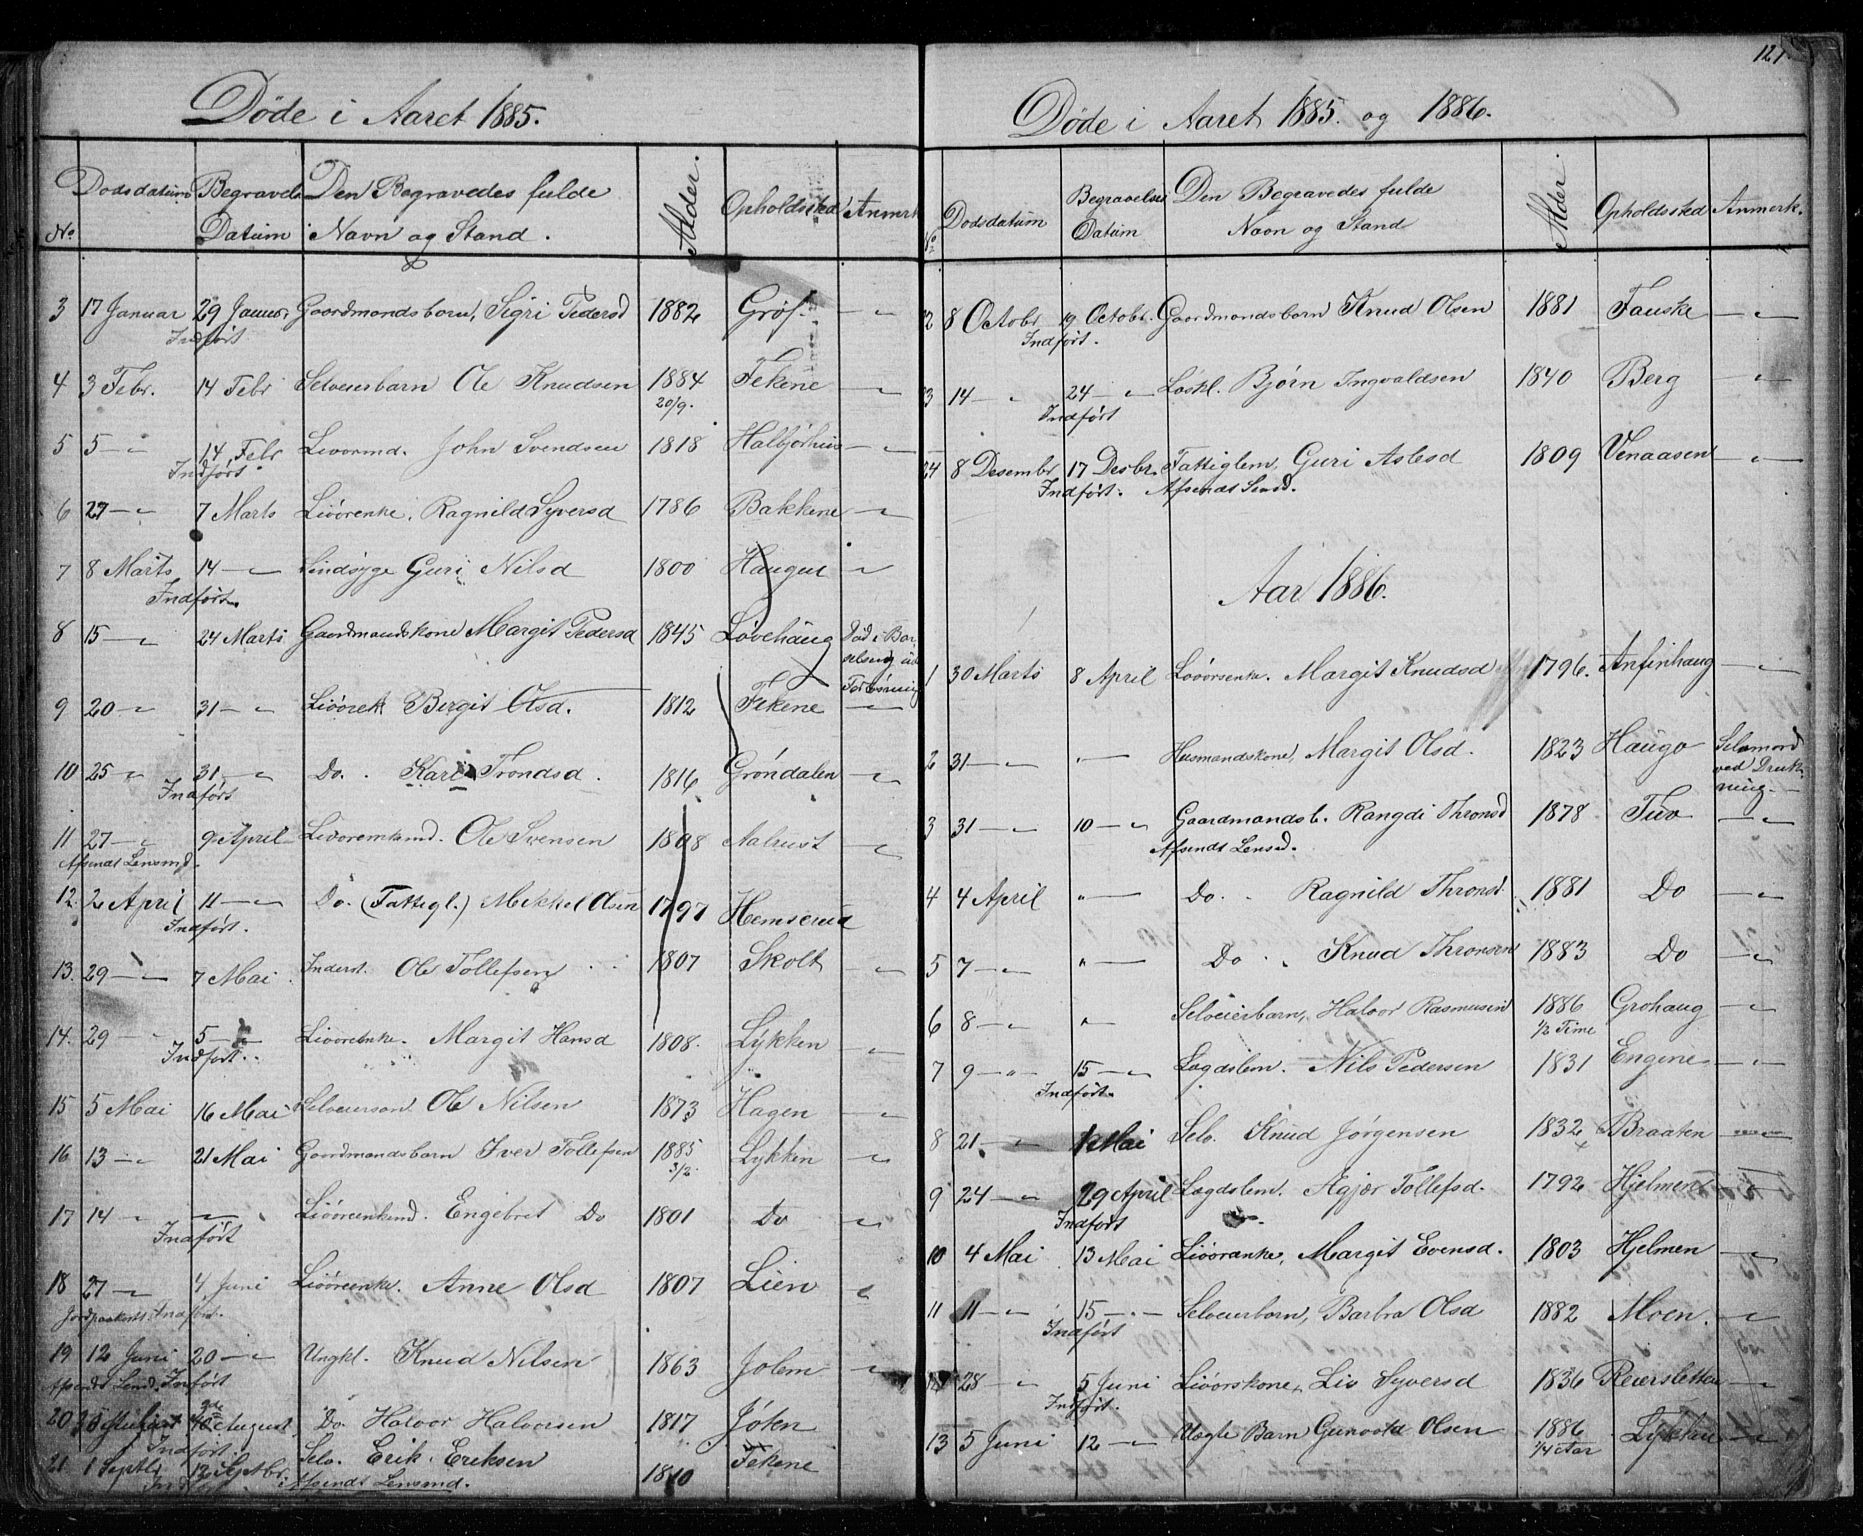 Døde i Aaret 1885.
No Dødsdatum Begravels Datum Den Begravedes fulde Navn og Stand. Alder. Opholdssted Anmerk
3 17 Januar 29 Januar Gaardmandsbarn, Sigri Pedersd 1882 Grøf
Indført
4 3 Febr. 14 Febr Selveierbarn Ole Knudsen 1884 Fekene
20/9.
5 5 14 Febr Livørmd. John Svendsen 1818 Halbjørhus
Indført
6 27 7 Marts Livørenke. Ragnild Syversd 1786 Bakkene
7 8 Marts 14 Sindsyge Guri Nilsd 1800 Haugen
Indført
8 15 24 Marts Gaardmandskone Margit Pedersd 1845 Løvehaug Død i Bar
selseng
Forløsning
9 20 31 Livørek Birgit Olsd. 1812 Fekene
10 25 31 Do. Kari Trondsd. 1816 Grøndalen
Indført
11 27 9 April Livøremkmd. Ole Svensen 1808 Aalrust
Afsendt Lensmd.
12. 2 April 11 Do. (Fattigl.) Mikkel Olsen 1797 Hemserud
Indført.
13. 29 7 Mai Inderst. Ole Tollefsen 1807 Skolt
14. 29 5 Livørenke. Margit Hansd 1808. Lykken
Indført.
15 5 Mai 16 Mai Selveierson Ole Nilsen 1873 Hagen
16 13 21 Mai Gaardmandsbarn Iver Tollefsen 1885 Lykken
3/2.
17 14 Livørenkmd. Engebret Do 1801 Do
Indført
18 27 4 Juni Livørenke. Anne Olsd 1807 Lien
Jordpaakastt Indført.
19 12 Juni 20 Ungkl. Knud Nilsen 1863 Jolem
Afsendt Lensd. Indført
20 August Do Halvor Halvorsen 1817 Jøten
Indført.
21 1 Septbr 12 Septbr. Selv. Erik Eriksen 1810 Fekene
Afsendt Lensmd.
127.
Døde i Aaret 1885. og 1886.
No Dødsdatum Begravelses Datum Den Begravedes fulde Navn og Stand Alder. Opholdssted Anmerk.
22 8 Octobr 19 Octobr. Gaardmandsbarn Knud Olsen 1881 Fauske
Indført.
23 14 24 Løskl. Bjørn Ingvaldsen 1840 Berg
Indført
24 8 Desembr 17 Desbr. Fattiglem, Guri Aslesd 1809 Venaasen
Indført. Afsendt Lensd.
Aar 1886.
1 30 Marts 8 April Livørsenke. Margit Knudsd 1796. Anfinhaug
2 31 Husmandskone, Margit Olsd. 1823 Haugo Selvmord
ved Druk-
ning.
3 31 10 Gaardmandsb. Rangdi Thronsd 1878 Tuv
Afsendt Lensd.
4 4 April Do. Ragnild Thronsd. 1881 Do
5 7 Do. Knud Thronsen 1883 Do
6 8 Selveierbarn, Halvor Rasmusen 1886 Grohaug
1/2 Time
7 9 15 Lægdslem. Nils Pedersen 1831 Engene
Indført.
8 21 1 Mai Selv. Knud Jørgensen 1832 Braaten
9 24 29 April Lægdslem. Agjer Tollefsd. 1792 Hjelmen
Indført
10 4 Mai 13 Mai Livøranke, Margit Evensd. 1803 Hjelmen
11 11 15 Selveierbarn, Barbra Olsd 1882 Moen.
Indført
12 28 5 Juni Livørskone, Liv Syversd 1836 Reiersletten
Indført.
13 5 Juni 12 Uægte Barn Gunvold Olsen 1886 Lykken
1/4 Aar